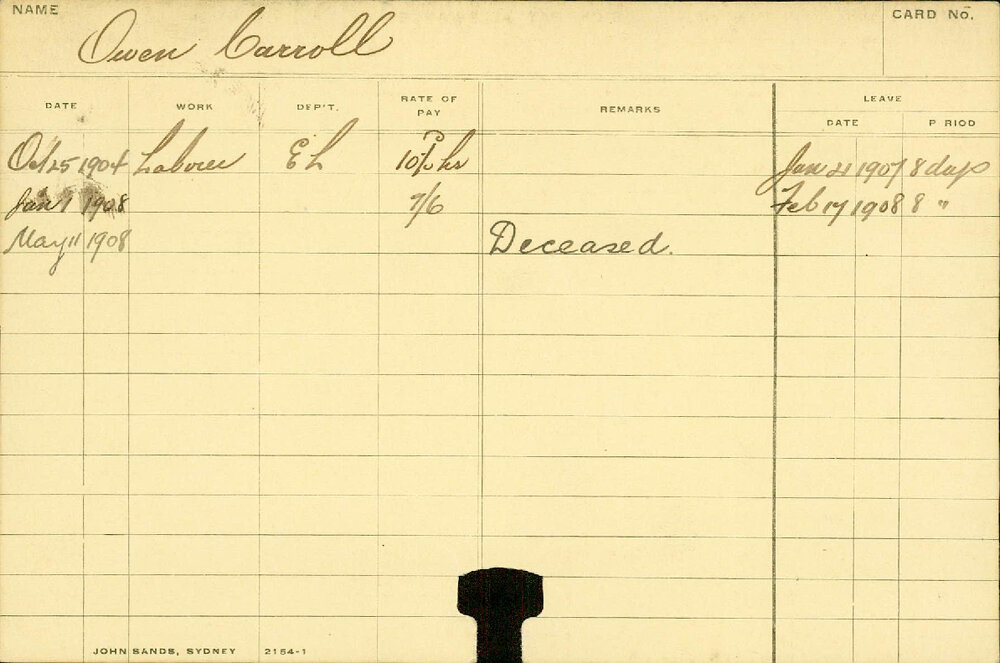 NAME Owen Carroll CARD No.
DATE WORK DEP'T. RATE OF PAY REMARKS LEAVE
DATE P RIOD
Oct 25 1904 Labourer E L hr Jan 21 1907 8 days
Jan 1 1908 7/6 Feb 17 1908 8 "
May 11 1908 Deceased.
JOHN SANDS, SYDNEY 2154-1